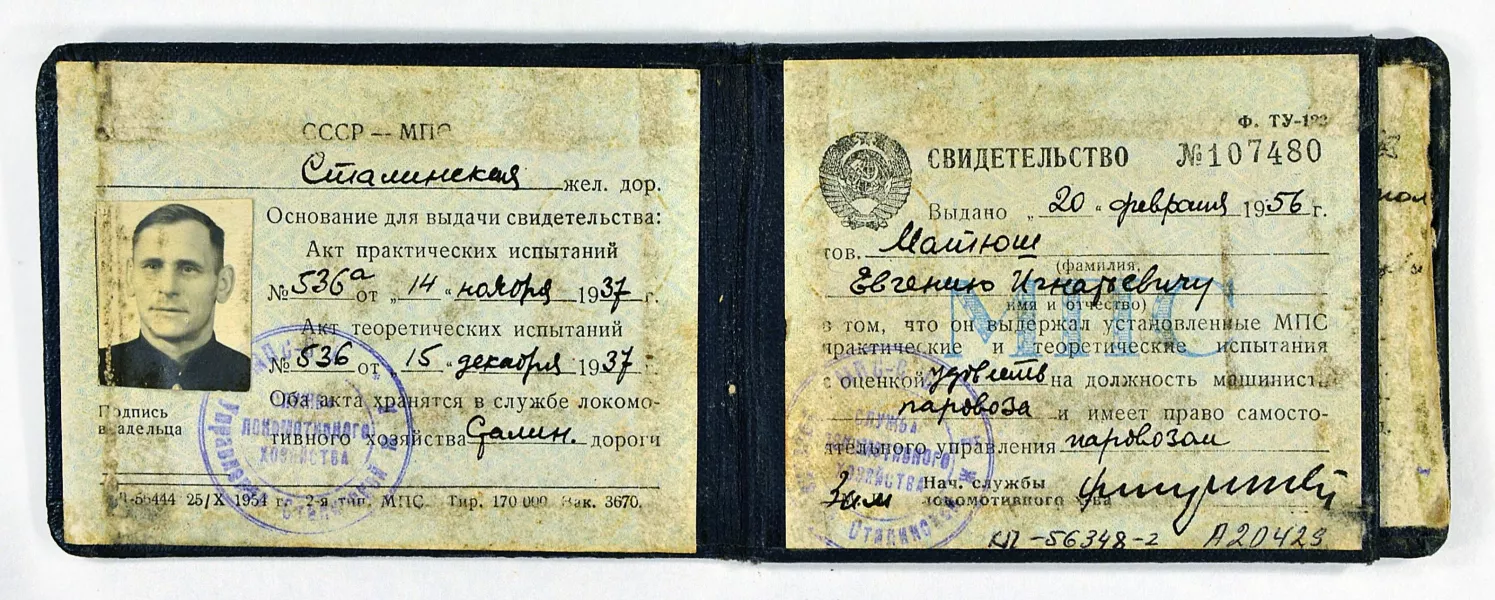 СССР — МПС
Сталинская жел. дор.
Основание для выдачи свидетельства:
Акт практических испытаний
№ 536а от „ 14 “ ноября 1937 г.
Акт теоретических испытаний
№ 536 от „ 15 “ декабря 1937 г.
Оба акта хранятся в службе локомо-
тивного хозяйства Сталин. дороги
Подпись
владельца
-56444 25/X 1954 г. 2-я тип. МПС. Тир. 170 000 Зак. 3670.
СЛУЖБА
ЛОКОМОТИВНОГО
ХОЗЯЙСТВА
Ф. ТУ-
СВИДЕТЕЛЬСТВО №107480
Выдано „ 20 “ февраля 1956 г.
тов. Матюш
(фамилия,
Евгению Игнатьевичу
имя и отчество)
в том, что он выдержал установленные МПС
практические и теоретические испытания
с оценкой удовлетв на должность машиниста
паровоза и имеет право самосто-
ятельного управления паровозом
Зам Нач. службы
локомотивного х-ва
МПС
СЛУЖБА
ЛОКОМОТИВНОГО
ХОЗЯЙСТВА
КП-56348-2 А20423